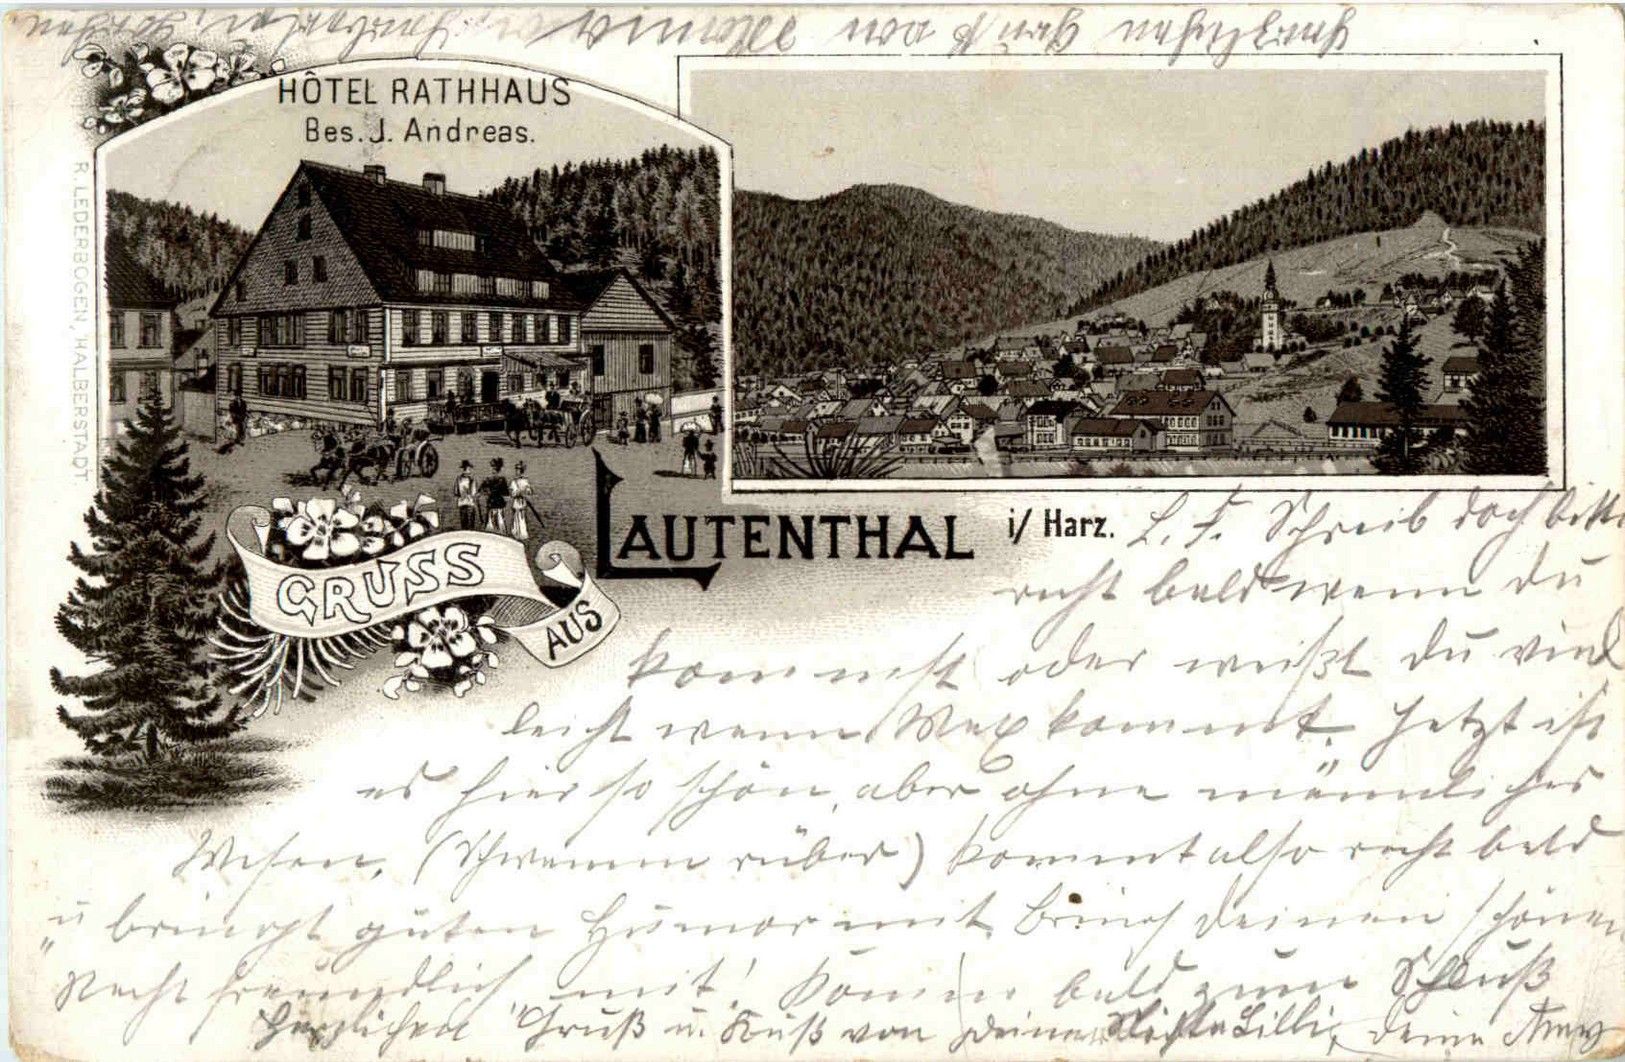 HÔTEL RATHHAUS
Bes. J. Andreas.
R. LEDERBOGEN, HALBERSTADT
GRUSS
AUS
LAUTENTHAL i/ Harz.
Herzlichen Gruß von
L. F. Schreib doch bitte
recht bald wenn du
kommst oder weißt du viel
leicht wenn Max kommt. Jetzt ist
es hier so schön, aber ohne männliches
Wesen, (Schwamm rüber) kommt also recht bald
u bringt guten Humor mit. Bring deinen schönen
„Recht freundlich" mit! Komm bald zum Schluß
herzlichen Gruß u. Kuß von Deiner Lilli, deine